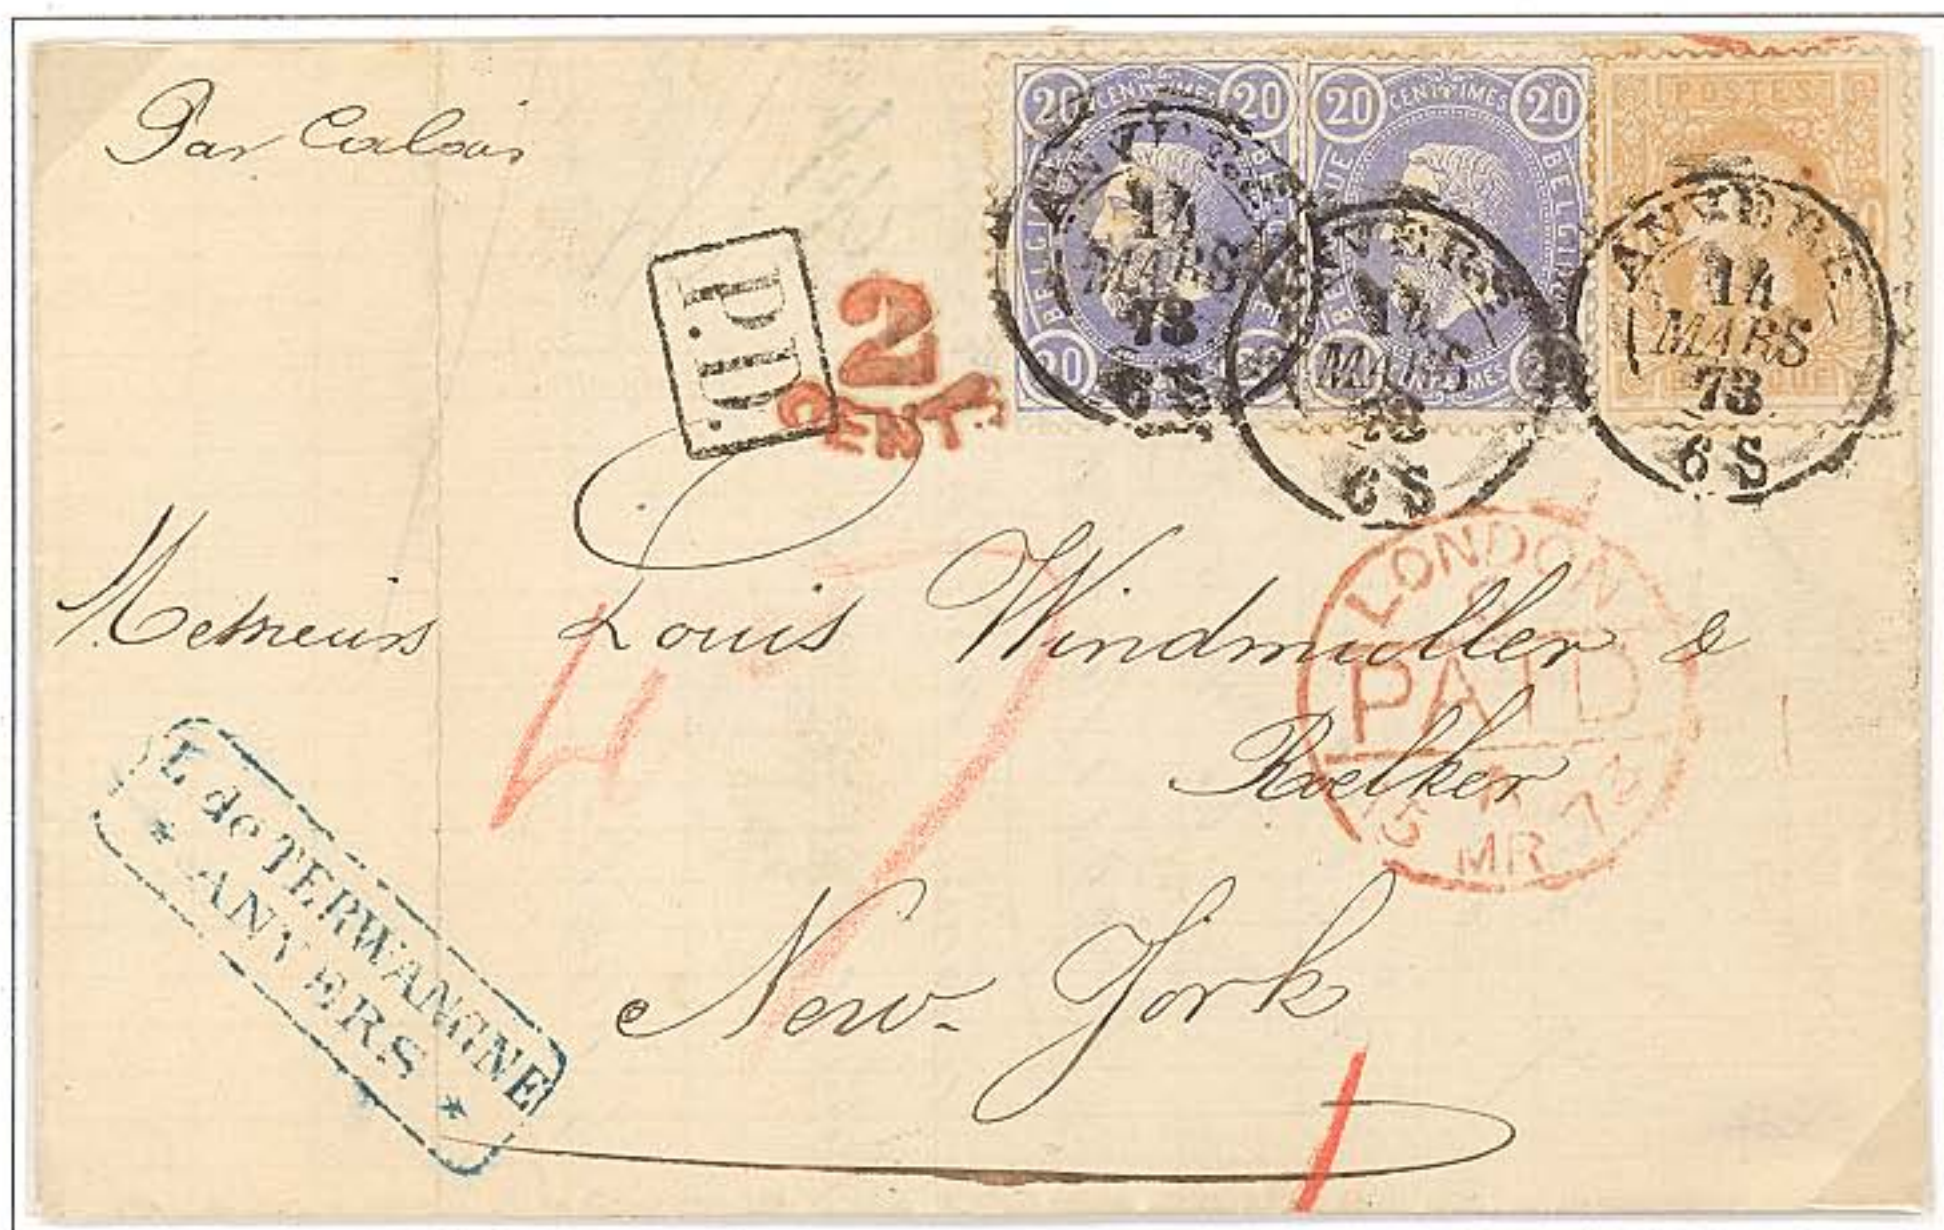 Par Calais
20 CENTIMES 20
20 CENTIMES 20
POSTES
BELGIQUE
BELGIQUE
20
ANVERS
14
MARS
73
6 S
ANVERS
14
MARS
73
6 S
ANVERS
14
MARS
73
6 S
P.D.
2
CENTS.
LONDON
PAID
15 MR 73
Messieurs Louis Windmuller &
Roelker
New-York
L de TERWANGNE
* ANVERS *